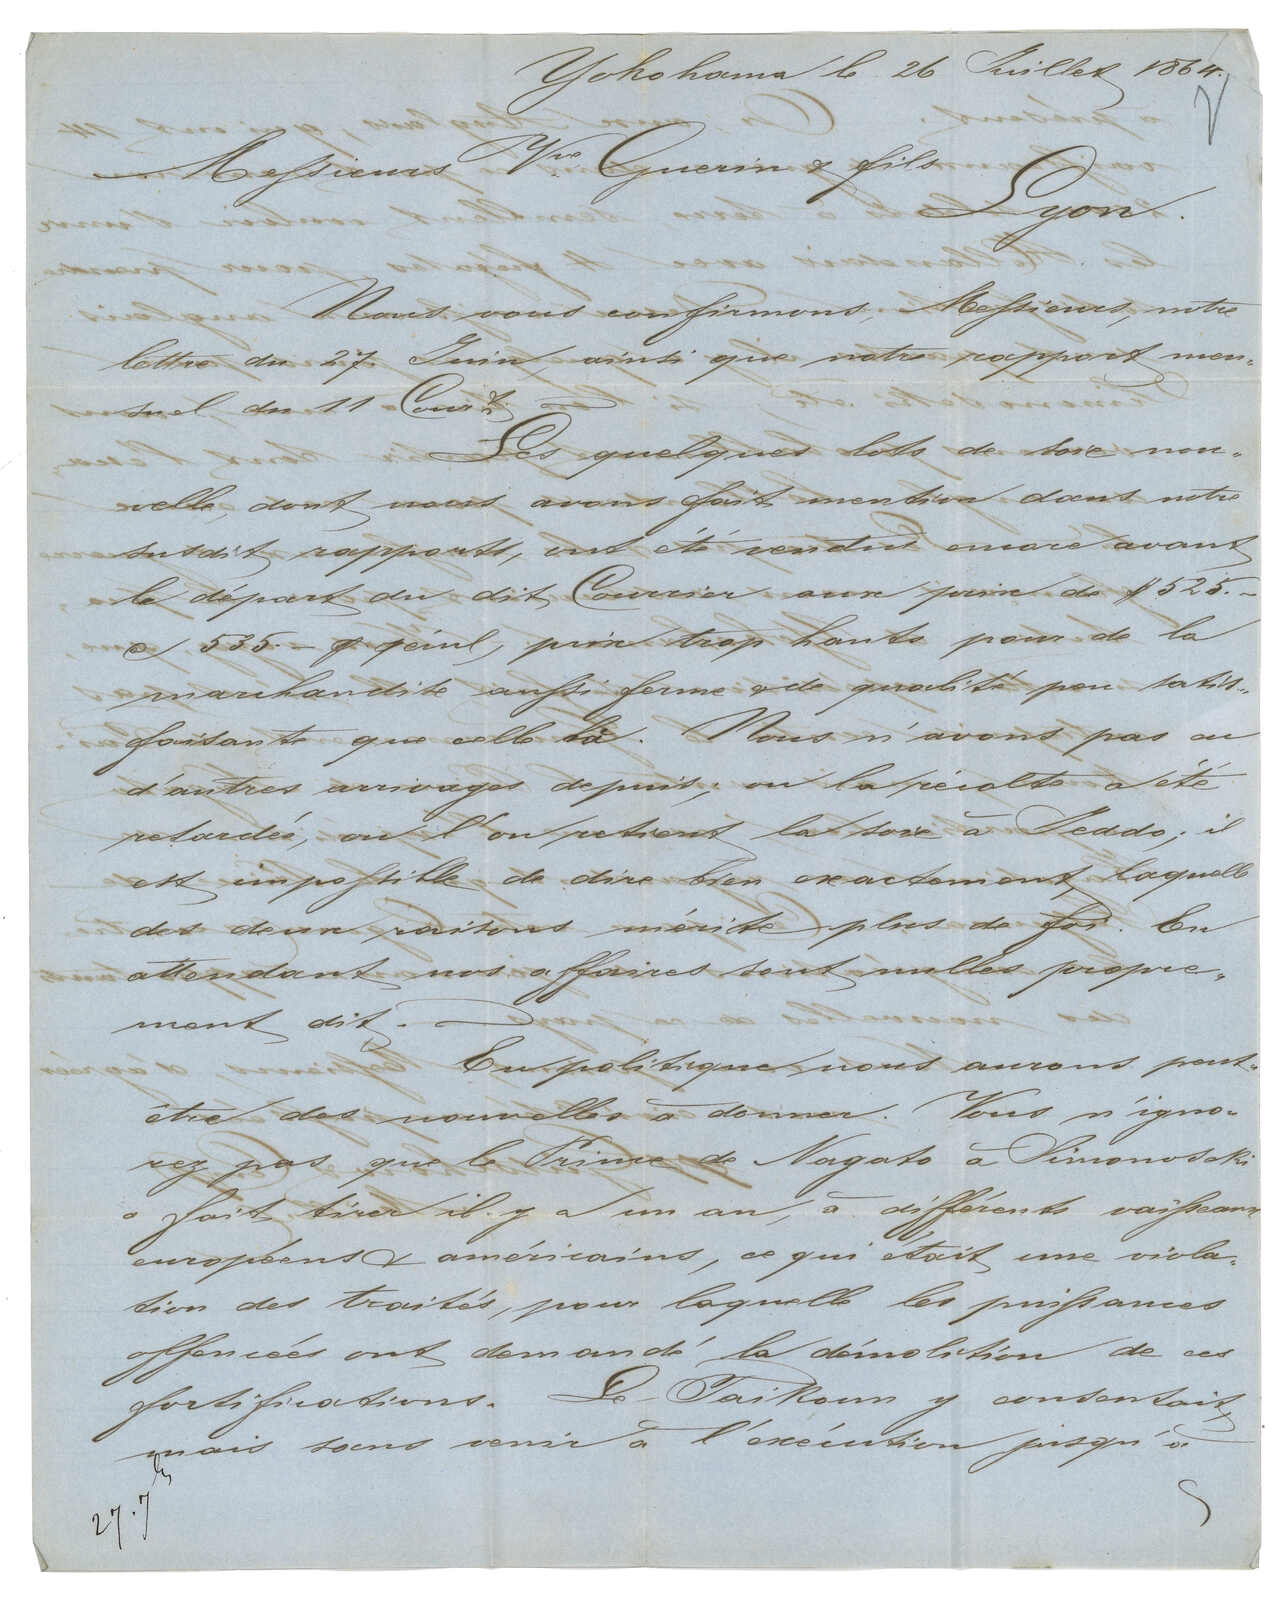 Yokohama le 26 Juillet 1864.
Messieurs Vve Guerin & fils
Lyon.
Nous vous confirmons, Messieurs, notre
lettre du 27 Juin, ainsi que notre rapport men-
suel du 11 Court.
Les quelques lots de soie nou-
velle, dont nous avons fait mention dans notre
susdit rapports, ont été vendus encore avant
le départ du dit Courrier aux prix de $ 525.-
à 535.- p. pécul, prix trop hauts pour de la
marchandise aussi ferme & de qualité peu satis-
faisante que celle là. Nous n'avons pas eu
d'autres arrivages depuis; ou la récolte a été
retardée, ou l'on retient la soie à Jeddo; il
est impossible de dire bien exactement, laquelle
des deux raisons mérite plus de foi. En
attendant nos affaires sont nulles propre-
ment dit.
En politique nous aurons peut-
être des nouvelles à donner. Vous n'igno-
rez pas que le Prince de Nagato à Simonoseki
a fait tirer il y a un an, à différents vaisseaux
européens & américains, ce qui était une viola-
tion des traités, pour laquelle les puissances
offencées ont demandé la démolition de ces
fortifications. Le Taikoun y consentait,
mais sans venir à l'exécution jusqu'à
27.7